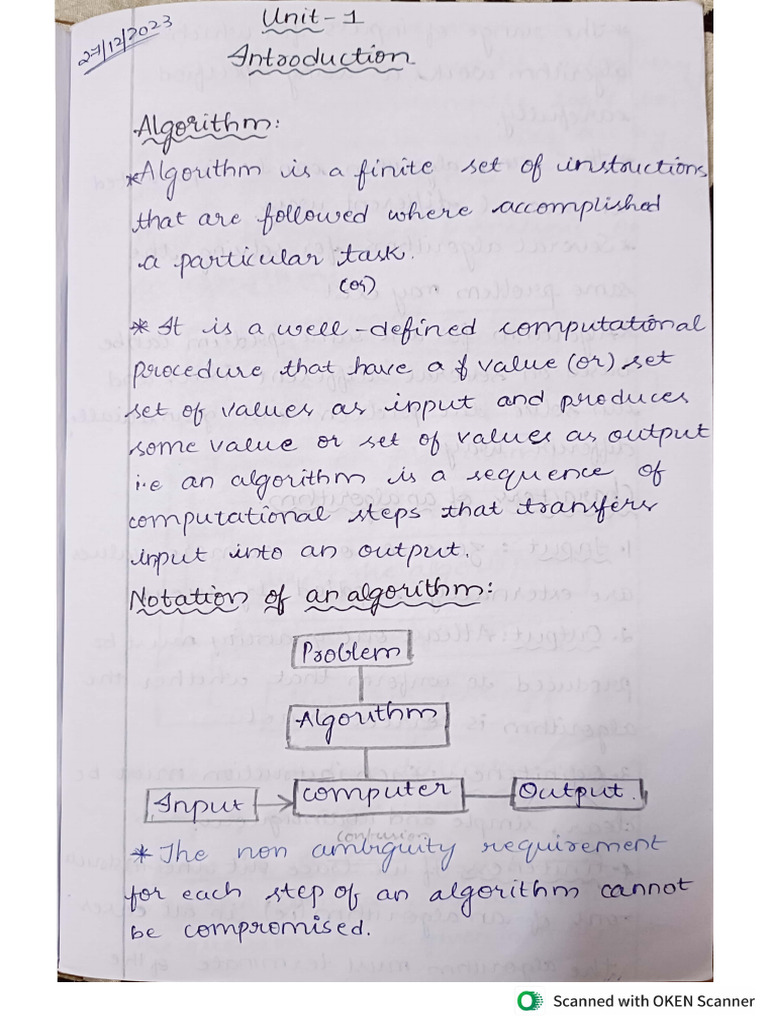 27/12/2023
Unit-1
Introduction
Algorithm:
*Algorithm is a finite set of instructions
that are followed where accomplished
a particular task.
(or)
* It is a well-defined computational
procedure that have a value (or) set
set of values as input and produces
some value or set of values as output
i.e an algorithm is a sequence of
computational steps that transfers
input into an output.
Notation of an algorithm:
Problem
Algorithm
Input
Computer
Output.
confusion
* The non ambiguity requirement
for each step of an algorithm cannot
be compromised.
Scanned with OKEN Scanner